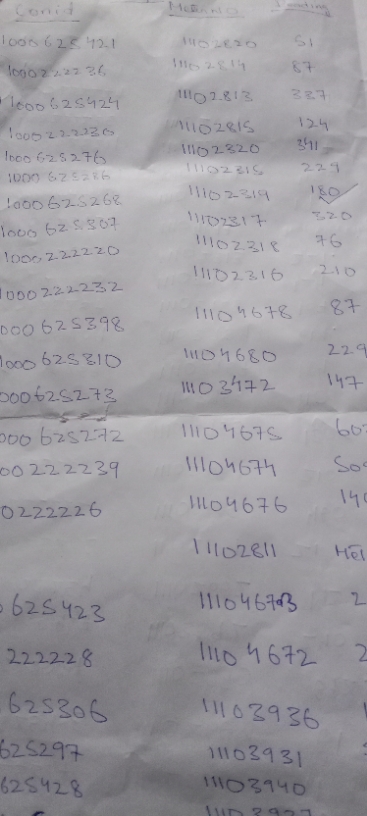 Conid MeterNo Reading
1000625421 11102820 51
1000222236 11102814 87
1000625424 11102813 337
1000222230 11102815 124
1000625276 11102320 341
1000625286 11102315 229
1000625268 11102319 180
1000625307 11102317 320
1000222220 11102318 76
1000222232 11102316 210
000625398 11104678 87
1000625310 11104680 229
000625273 11103472 147
000625272 11104675 60
00222239 11104674 50
0222226 11104676 14
11102811
625423 1110467 2
222228 11104672 2
625306 11103936
625297 11103931
625428 11103940